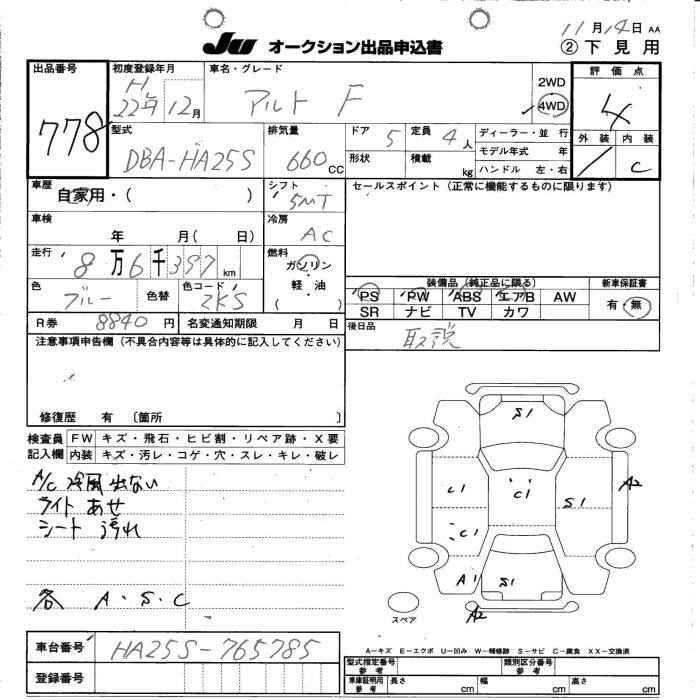 11月14日 AA
JU オークション出品申込書 ②下見用
出品番号 初度登録年月 車名・グレード 評価点
778 H 22年12月 アルト F 2WD 4WD 4
外装 内装
C
型式 排気量 ドア 定員 ディーラー・並行
DBA-HA25S 660cc 5 4人 モデル年式 年
形状 積載 kg ハンドル 左・右
車歴 シフト セールスポイント（正常に機能するものに限ります）
自家用・（ ） 5MT
車検 冷房
年 月（ 日） AC
走行 燃料
8万6千397km ガソリン・軽油・（ ）
色 色替 色コード 装備品（純正品に限る） 新車保証書
ブルー ZKS PS PW ABS エアB AW 有・無
SR ナビ TV カワ
R券 8840円 名変通知期限 月 日 後日品
取説
注意事項申告欄（不具合内容等は具体的に記入してください）
修復歴 有 〔箇所 〕
検査員記入欄 FW キズ・飛石・ヒビ割・リペア跡・X要
内装 キズ・汚レ・コゲ・穴・スレ・キレ・破レ
A/C 冷風出ない
ライト あせ
シート 汚れ
各 A・S・C
S1
C1 C1 S1 A2
C1
A1 S1
スペア A2
車台番号 HA25S-765785
登録番号
A－キズ E－エクボ U－凹み W－補修跡 S－サビ C－腐食 XX－交換済
型式指定番号 参考 類別区分番号 参考
車庫証明用 参考 長さ cm 幅 cm 高さ cm